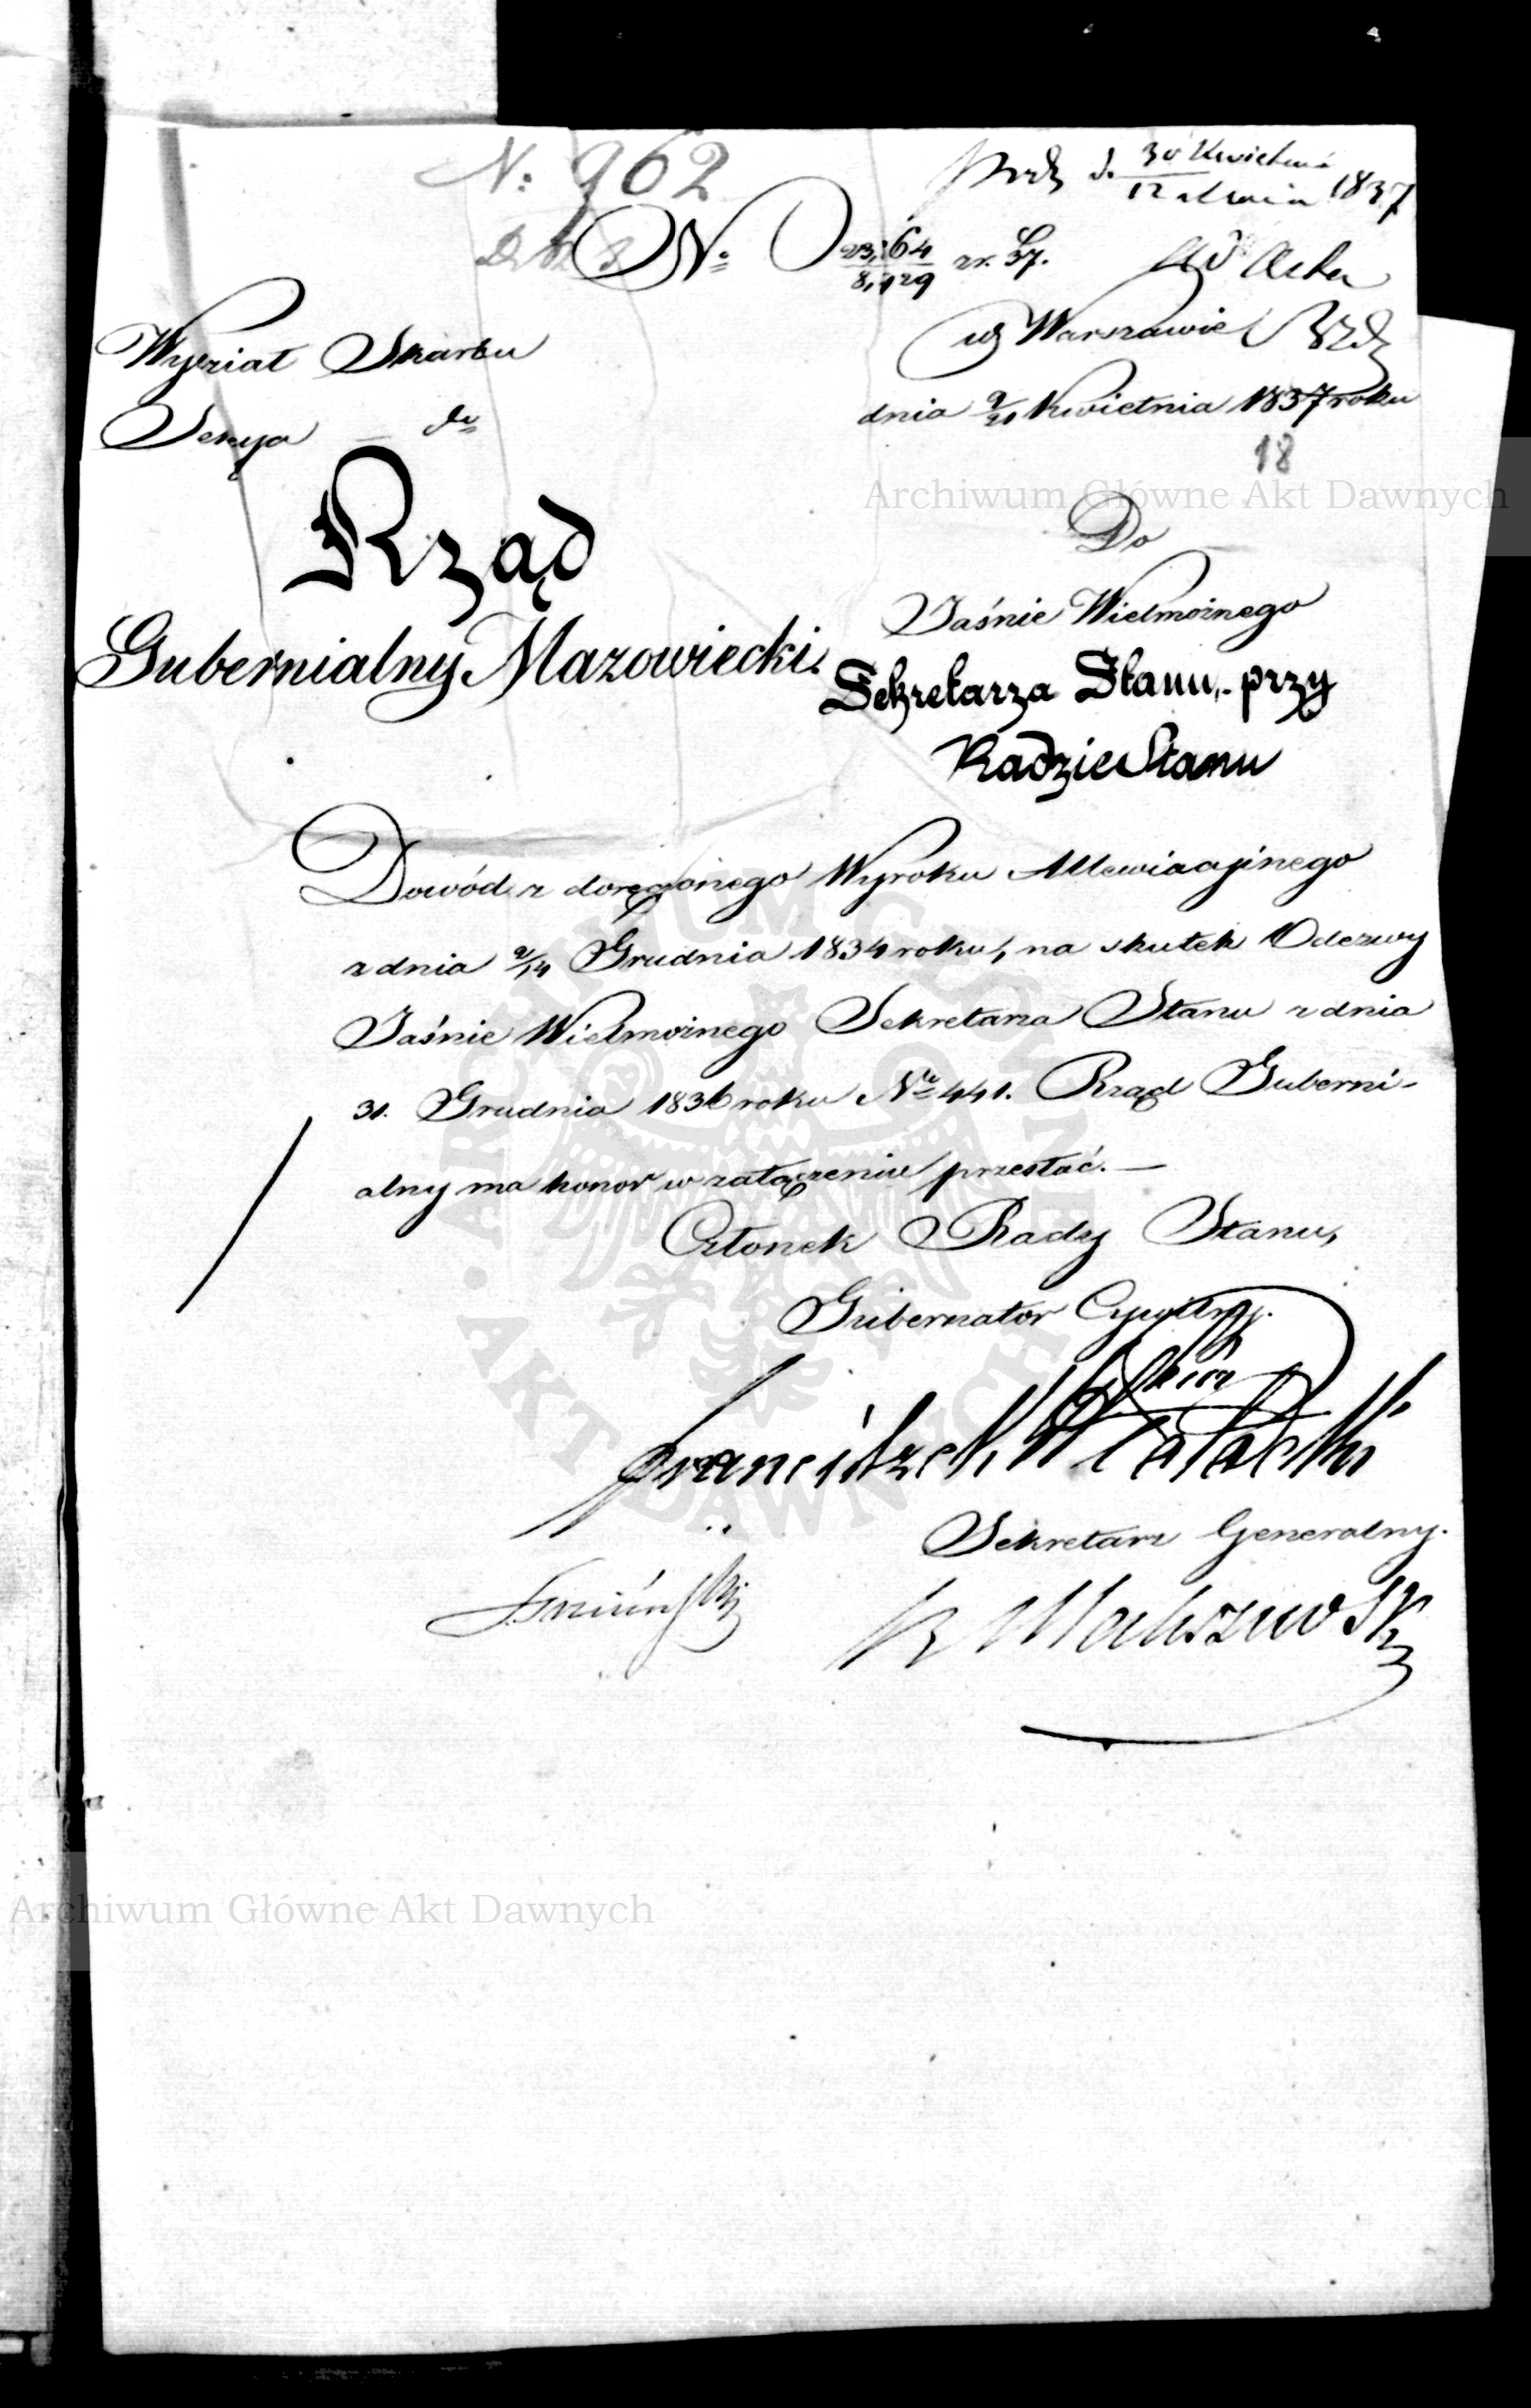 N. 962
30 Kwietnia
12 Maja 1837
No 23,164 / 8,129 z r. 37.
ad Acta
w Warszawie
Wydział Skarbu
dnia 9/21 Kwietnia 1837 roku
Sekcya
18
Archiwum Główne Akt Dawnych
Rząd
Gubernialny Mazowiecki.
Do
Jaśnie Wielmożnego
Sekretarza Stanu, przy
Radzie Stanu
Dowód z doręczonego Wyroku Allewiacyjnego
z dnia 2/14 Grudnia 1834 roku, na skutek Odezwy
Jaśnie Wielmożnego Sekretarza Stanu z dnia
31. Grudnia 1836 roku No 441. Rząd Guberni-
alny ma honor w załączeniu przesłać. —
Członek Rady Stanu,
Gubernator Cywilny.
Franciszek Potocki
Sekretarz Generalny.
Archiwum Główne Akt Dawnych
ARCHIWUM GŁÓWNE AKT DAWNYCH